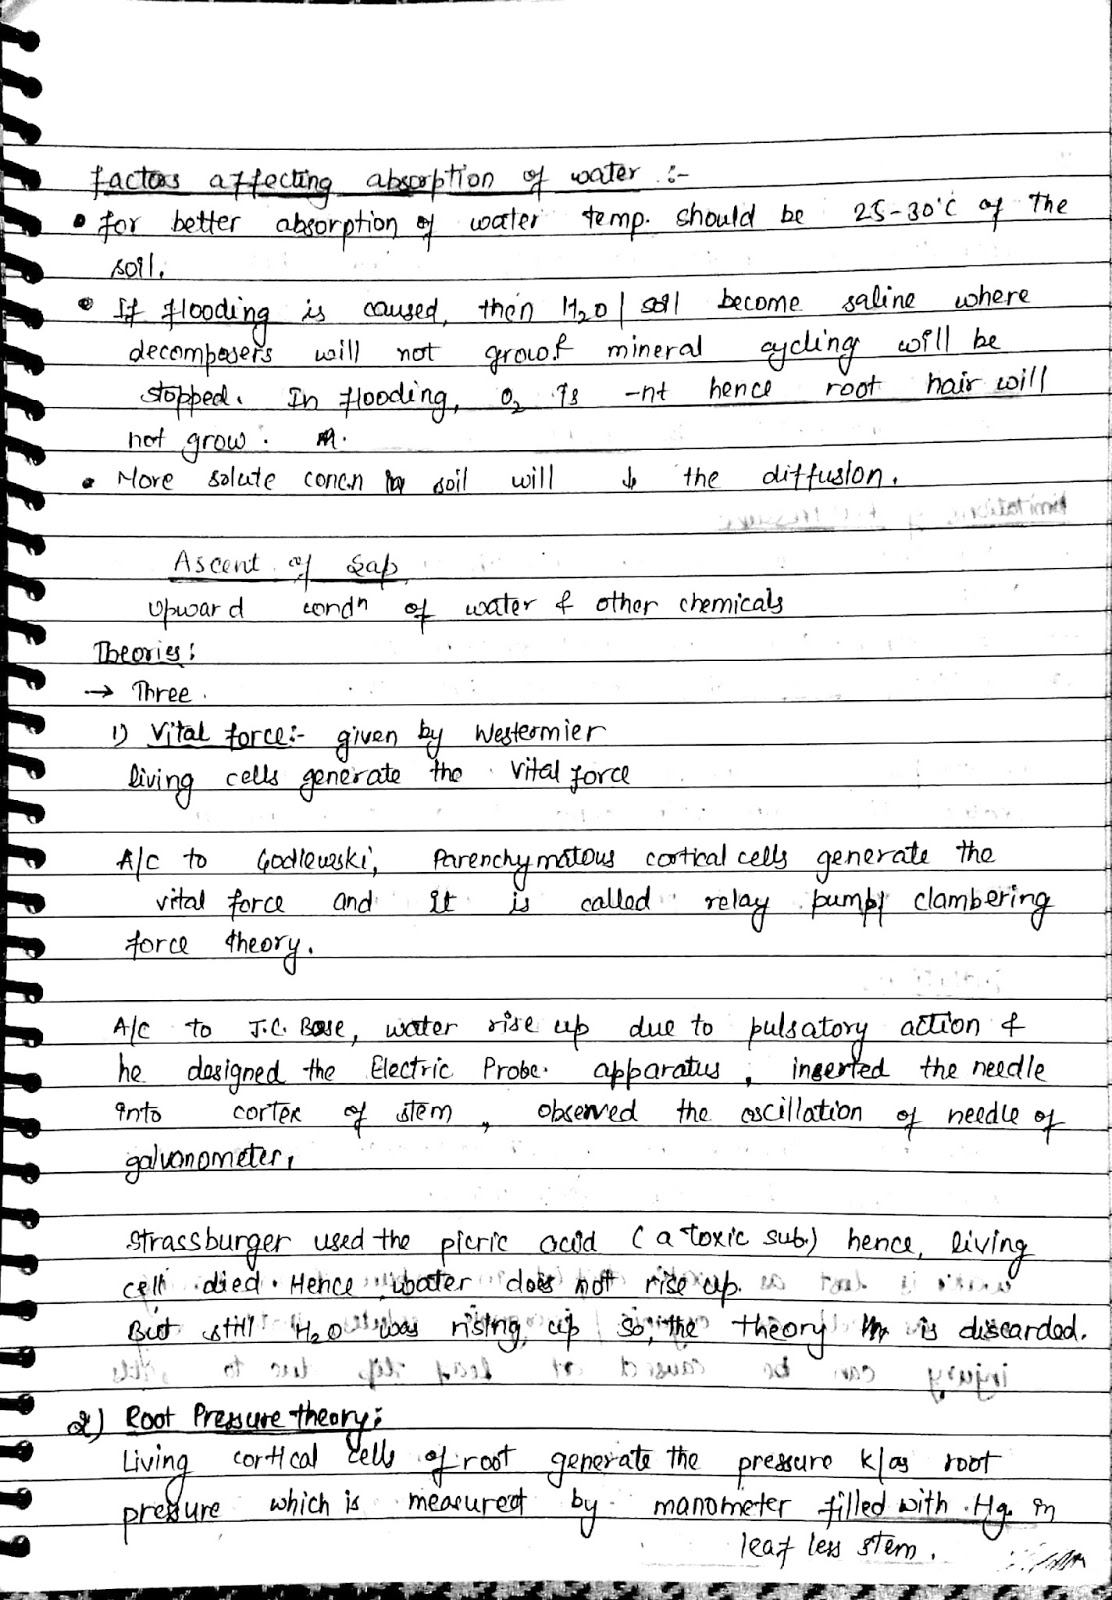 factors affecting absorption of water :-
• for better absorption of water temp. should be 25-30°C of The
soil.
• If flooding is caused, then H2O / soil become saline where
decomposers will not grow & mineral cycling will be
stopped. In flooding, O2 is -nt hence root hair will
not grow.
• More solute concn in soil will ↓ the diffusion.
Ascent of Sap
Upward condn of water & other chemicals
Theories:
→ Three.
1) Vital force:- given by Westermier
living cells generate the vital force
A/c to Godlewski, Parenchymatous cortical cells generate the
vital force and it is called relay pump/ clambering
force theory.
A/c to J.C. Bose, water rise up due to pulsatory action &
he designed the Electric Probe. apparatus, inserted the needle
into cortex of stem, observed the oscillation of needle of
galvanometer,
Strassburger used the picric acid (a toxic sub.) hence, living
cell died. Hence water does not rise up.
But still H2O was rising up so, the theory is discarded.
2) Root Pressure theory:
Living cortical cells of root generate the pressure k/as root
pressure which is measured by manometer filled with Hg. in
leaf less stem.